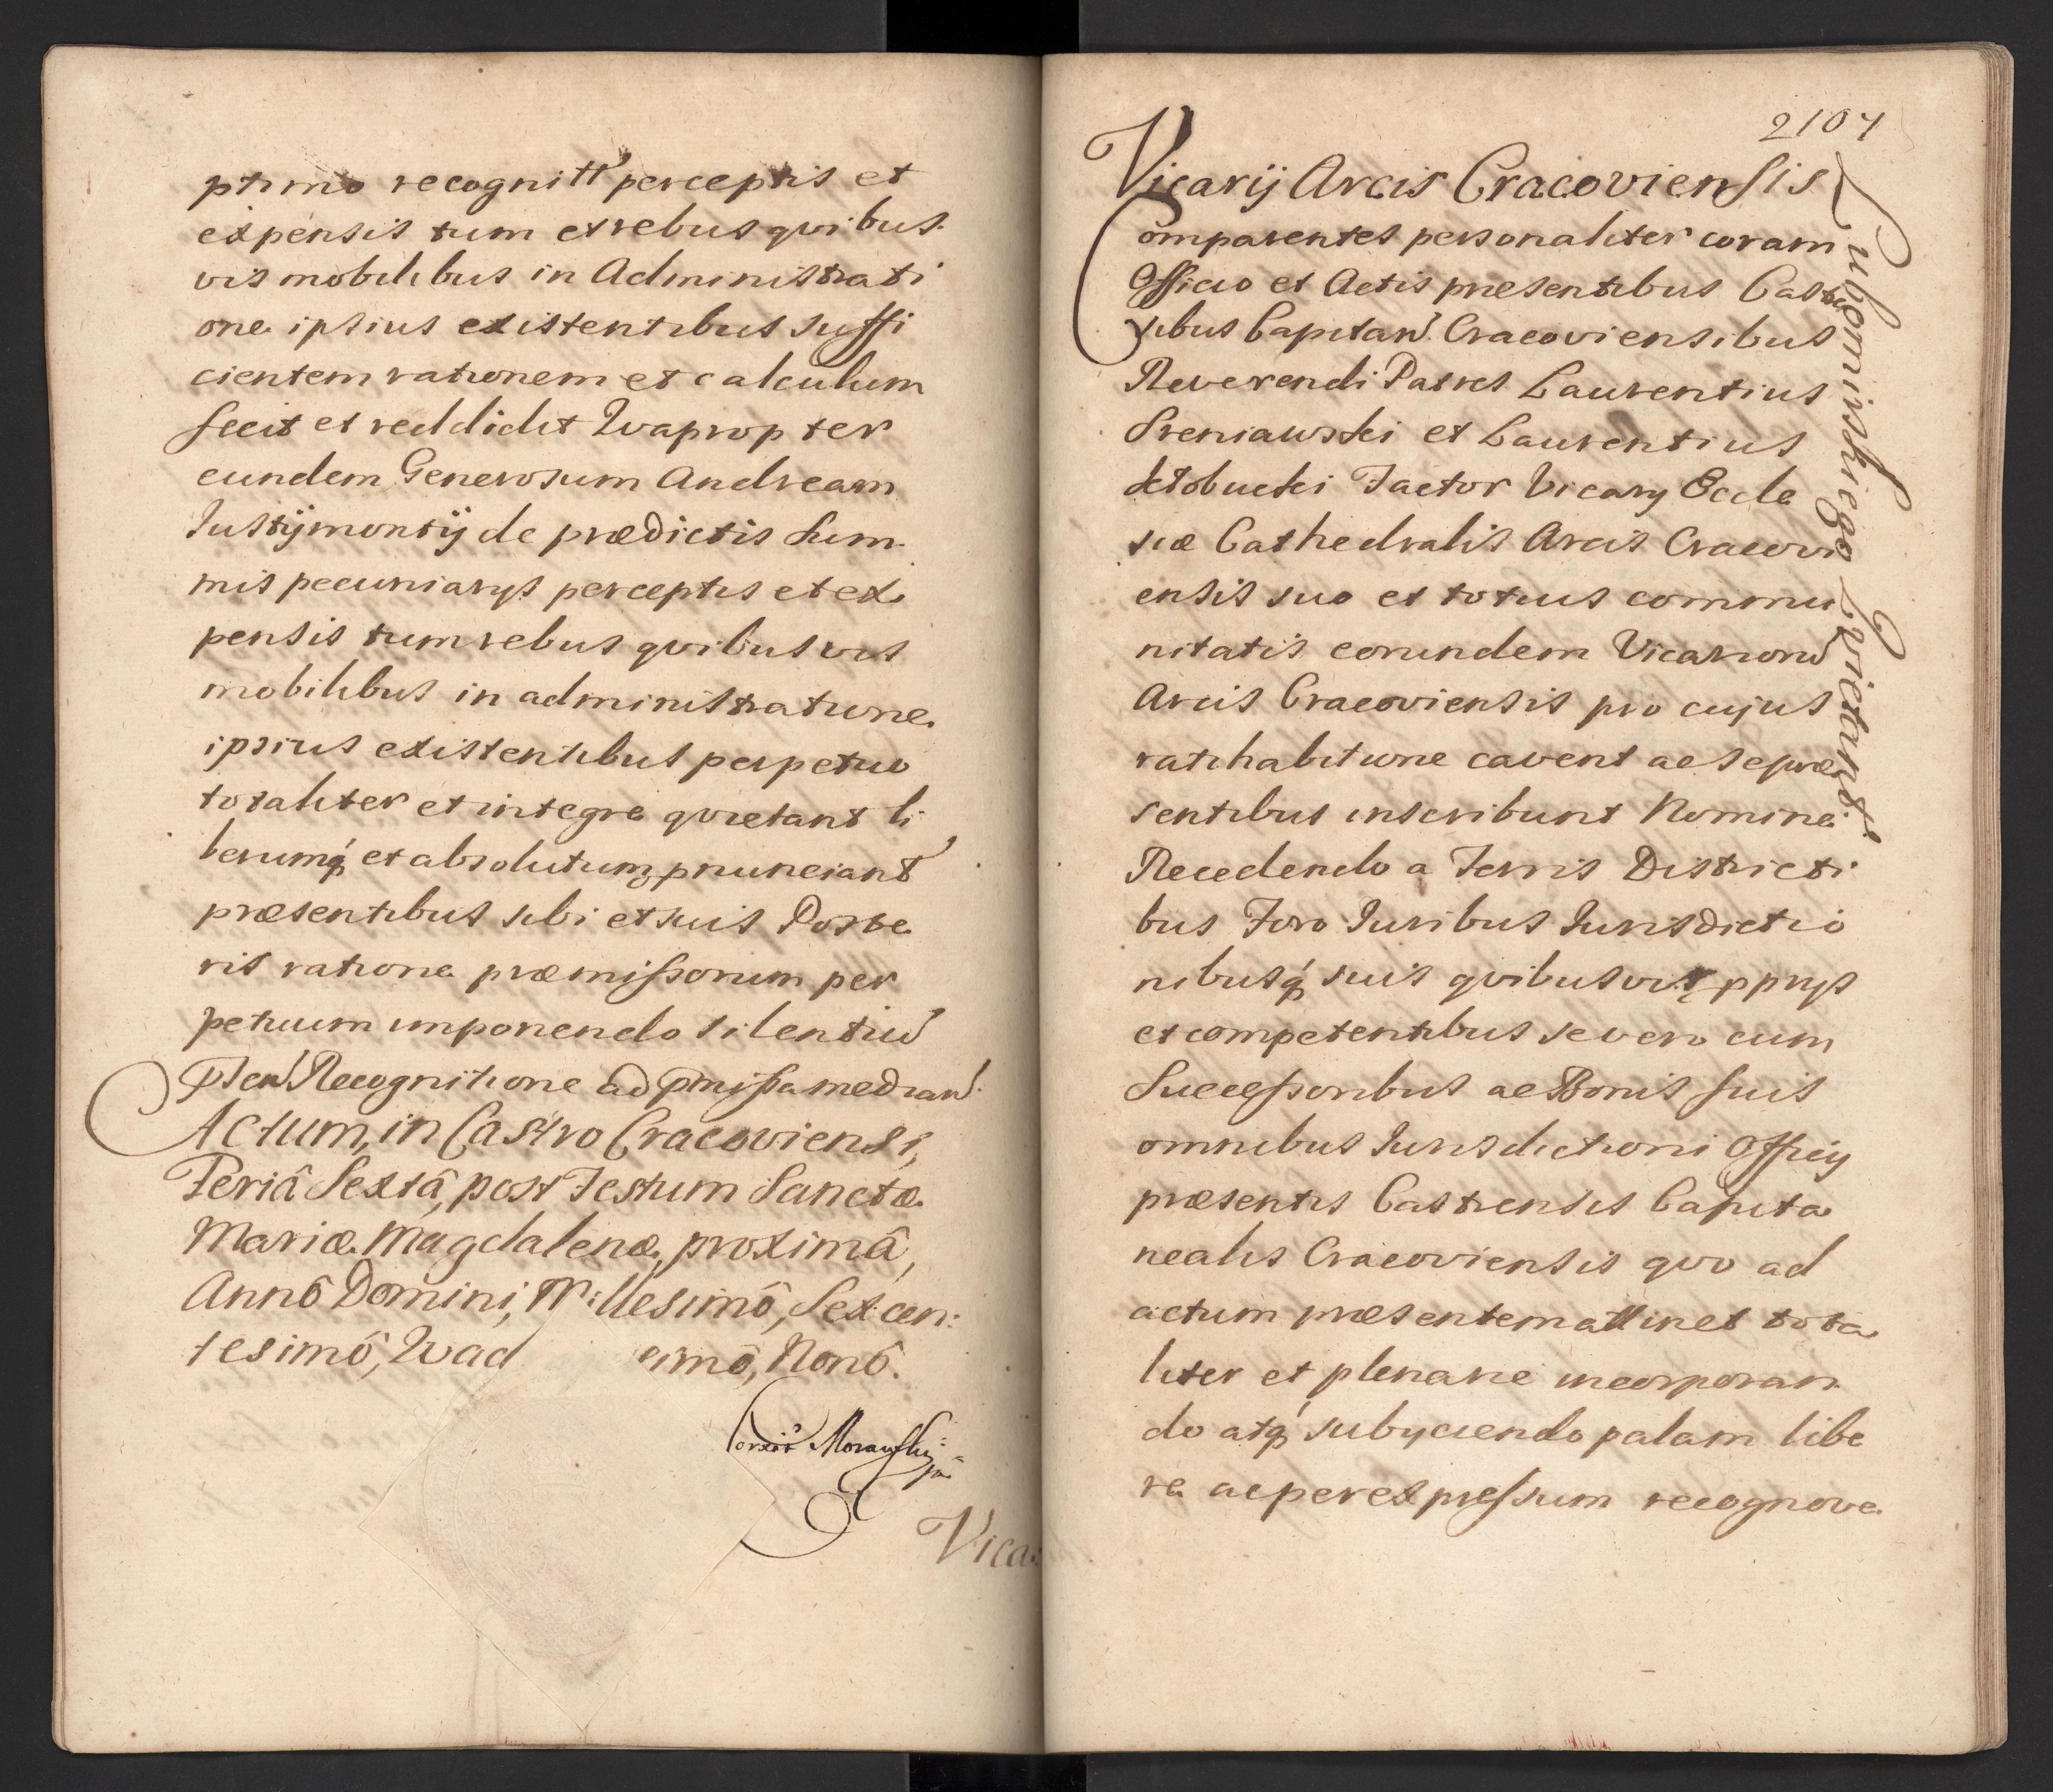 ptimo recognitt perceptis et
expensis tum et rebus quibus
vis mobilibus in Administrati
one ipsius existentibus suffi
cientem rationem et calculum
fecit et reddidit Quapropter
eundem Generosum Andream
Justÿmontÿ de prædictis Sum
mis pecuniarijs perceptis et ex
pensis tum rebus quibusvis
mobilibus in administratione
ipsius existentibus perpetuo
totaliter et integre quietant li
berumq et absolutum pnunciant
præsentibus sibi et suis Poste
ris ratione præmissorum per
petuum imponendo silentiu
Recognitione ad pmissa median
Actum, in Castro Cracoviensi,
Feriâ Sextâ, post Festum Sanctæ
Mariæ Magdalenæ, proximâ,
Annô Domini, Millesimô, Sexcen:
tesimô, Quad esimô, Nonô.
Morawsky
Vica:
2107
Vicarij Arcis Cracoviensis
Comparentes personaliter coram
Officio et Actis præsentibus Castren
sibus Capitan Cracoviensibus
Reverendi Patres Laurentius
Sreniawski et Laurentius
Klobucki Factor Vicarij Eccle
siæ Cathedralis Arcis Cracovi
ensis suo et totius commu
nitatis eorundem Vicarioru
Arcis Cracoviensis pro cujus
ratihabitione cavent ac se præ
sentibus inscribunt Nomine
Recedendo a Terris Districti
bus Foro Juribus Jurisdictio
nibusq suis quibusvis pprijs
et competentibus se vero cum
Successoribus ac Bonis suis
omnibus Jurisdictioni Officij
præsentis Castrensis Capita
nealis Cracoviensis quo ad
actum præsentem attinet tota
liter et plenarie incorporan
do atq subijciendo palam libe
re ac per expressum recognove
Lubomirskiego Qvietant.